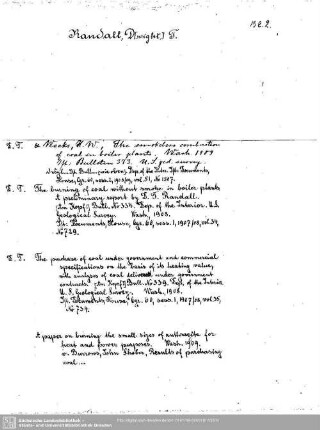 Bé.2.
Randall, D[wight] T.
D. T. & Weeks, H. W., The smokeless combustion
of coal in boiler plants. Wash. 1909
Bulletin 373. U. S. geol. survey.
D. T. The burning of coal without smoke in boiler plants
A preliminary report by D. T. Randall.
[Im Kopf:] Bull. No 334. Dep. of the Interior. U.S.
Geological Survey. Wash., 1908.
Documents, House, Cgr. 60, sess. 1, 1907/08, vol. 34,
No 729.
D. T. The purchase of coal under government and commercial
specifications on the basis of its heating value,
with analyses of coal delivered under government
contracts. [Im Kopf:] Bull. No 339. Dept. of the Interior
U. S. Geological Survey. Wash., 1908.
Documents, House, Cgr. 60, sess. 1, 1907/08, vol. 35,
No 734.
A paper on burning the small sizes of anthracite for
heat and power purposes. Wash. 1909.
Burrows, John Shober, Results of purchasing
coal...